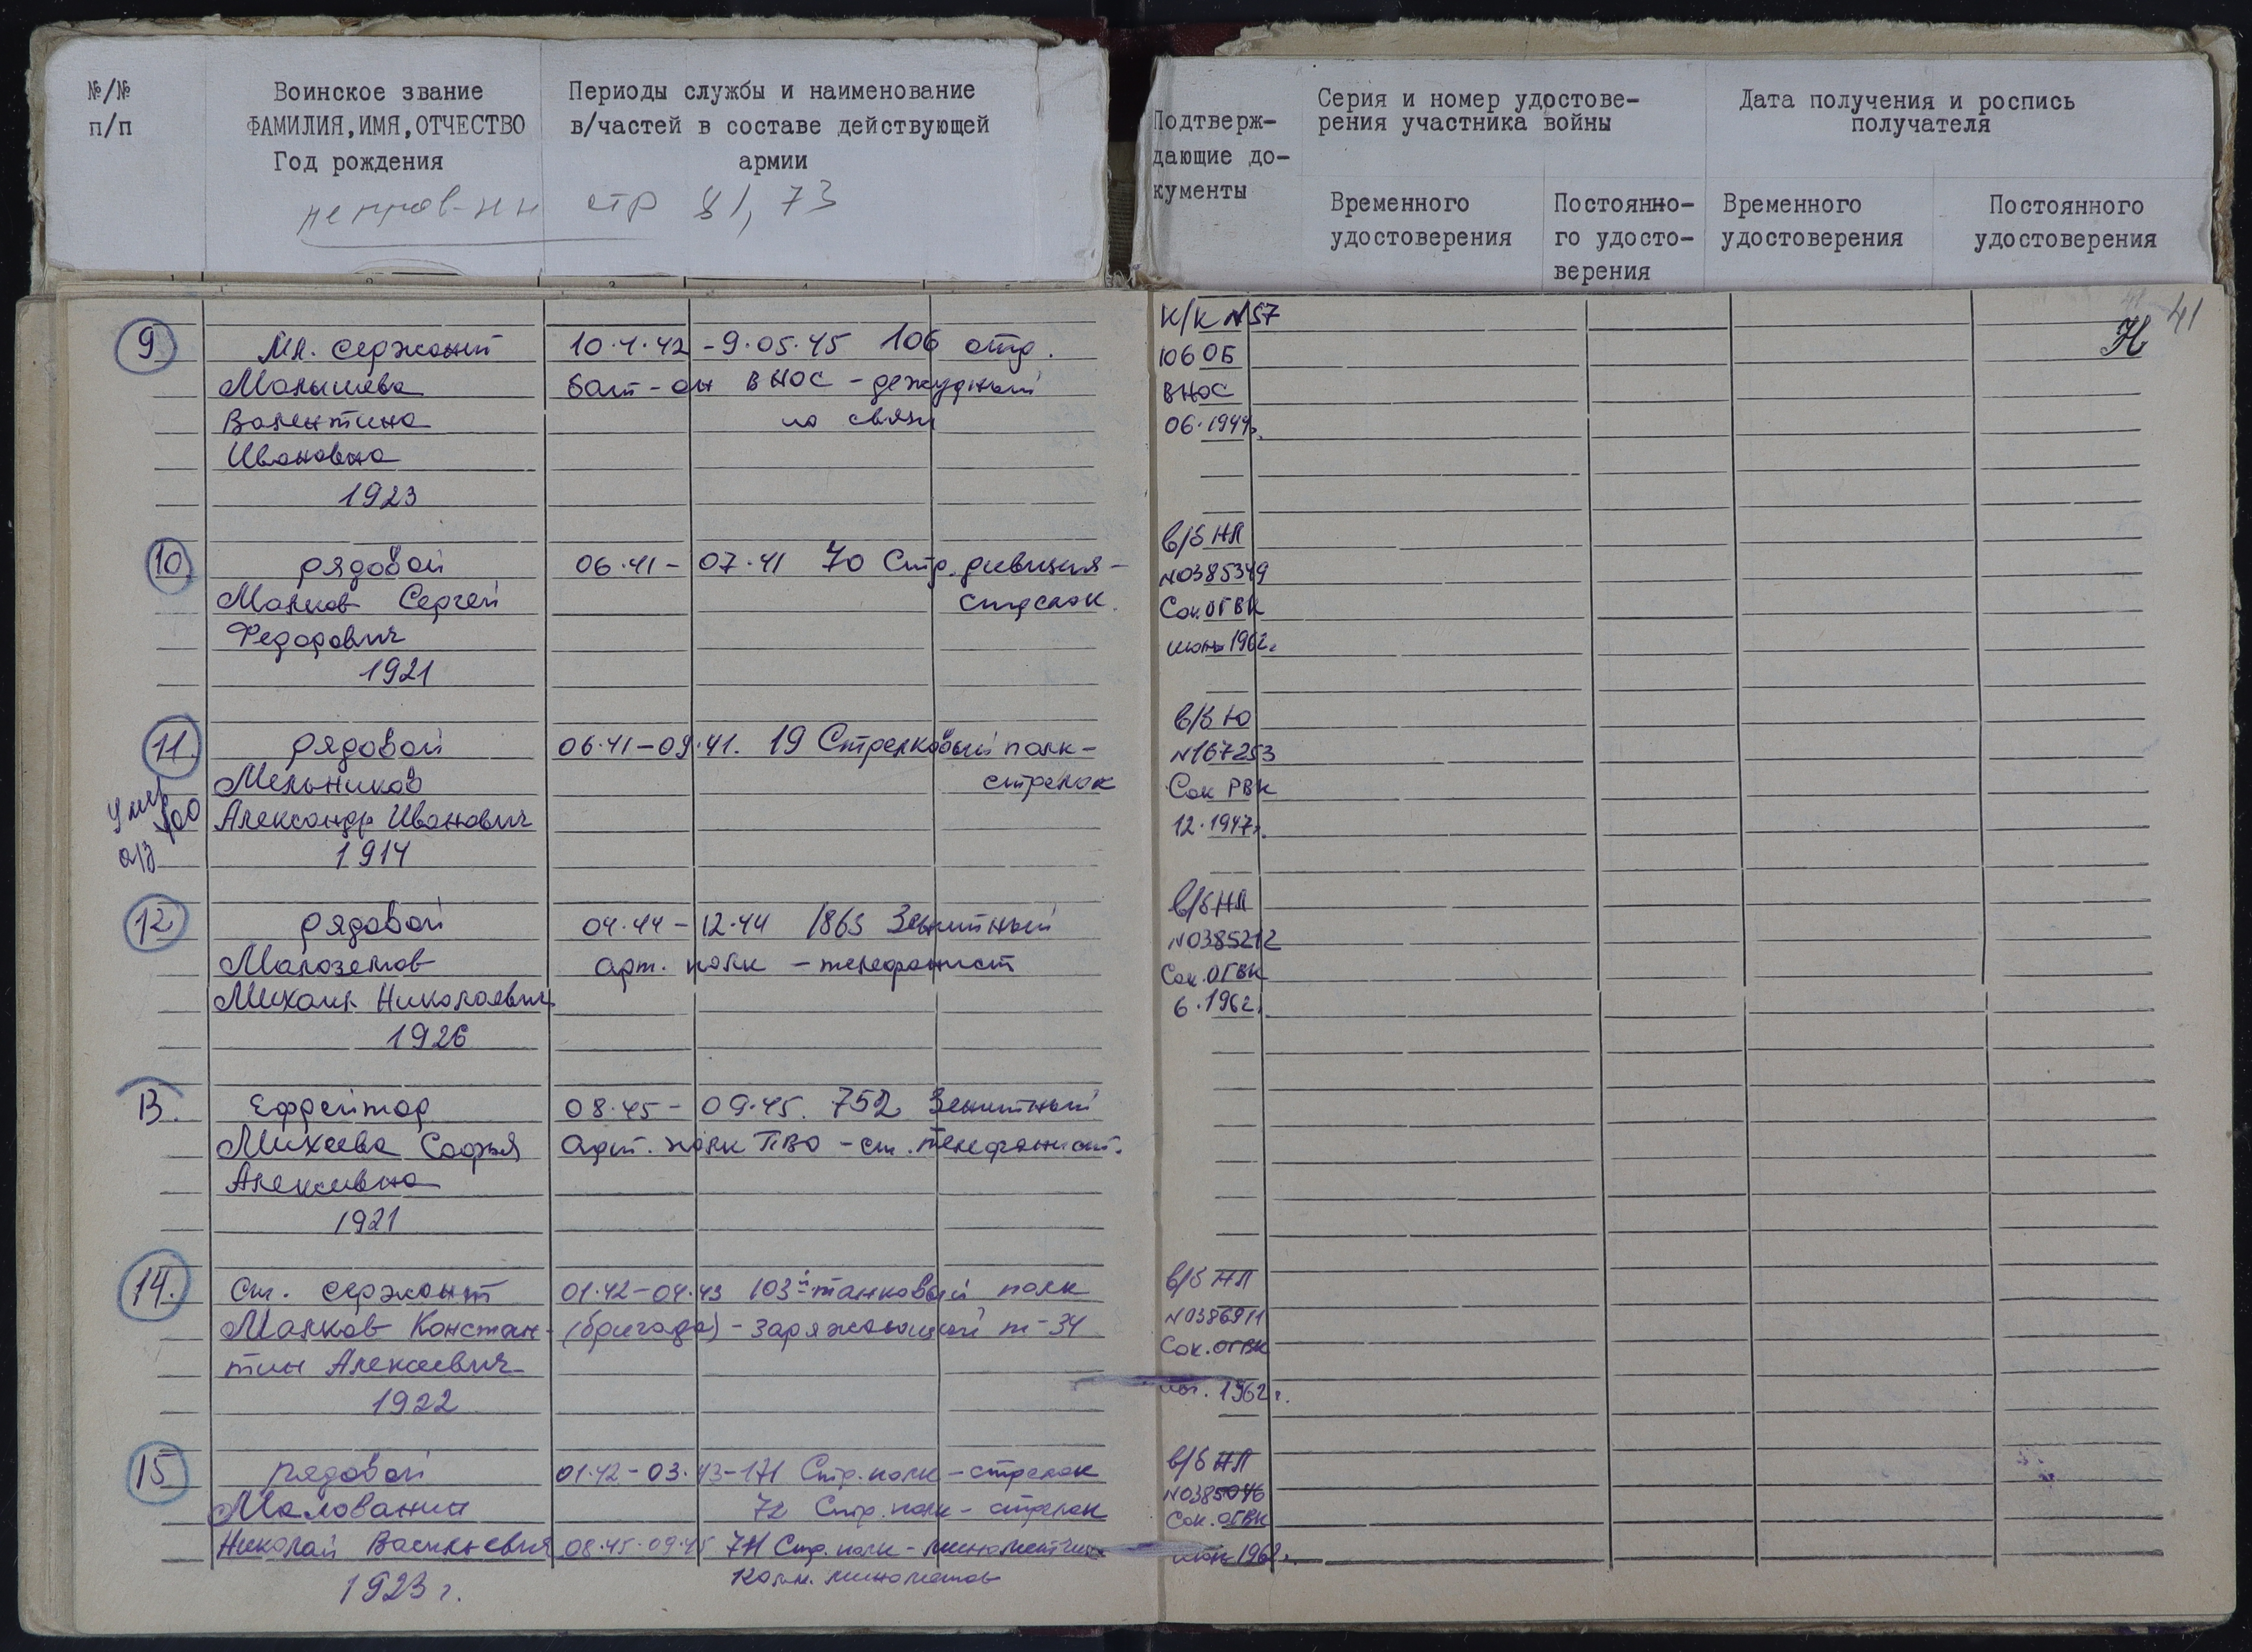 №/№
п/п
Воинское звание
ФАМИЛИЯ, ИМЯ, ОТЧЕСТВО
Год рождения
Периоды службы и наименование
в/частей в составе действующей
армии
стр 81, 73
Подтверж-
дающие до-
кументы
Серия и номер удостове-
рения участника войны
Временного
удостоверения
Постоянно-
го удосто-
верения
Дата получения и роспись
получателя
Временного
удостоверения
Постоянного
удостоверения
41
Н
9
Мл. сержант
Малышева
Валентина
Ивановна
1923
10.4.42 - 9.05.45 106 отд.
бат-он ВНОС - дежурный
по связи
К/К №57
106 ОБ
ВНОС
06.1944г.
10
рядовой
Малков Сергей
Федорович
1921
06.41 - 07.41 70 Стр. дивизия -
стрелок.
в/б НЛ
№0385349
Сок. ОГВК
июнь 1962г.
11.
рядовой
Мельников
Александр Иванович
1914
Умер
06.41 - 09.41. 19 Стрелковый полк -
стрелок
в/б Ю
№167253
Сок РВК
12.1947г.
12
рядовой
Малоземов
Михаил Николаевич
1926
04.44 - 12.44 1863 Зенитный
арт. полк - телефонист
в/б НЛ
№0385212
Сок. ОГВК
6.1962г.
13.
Ефрейтор
Михеева Софья
Алексеевна
1921
08.45 - 09.45. 752 Зенитный
арт. полк ПВО - ст. телефонист.
14.
Ст. сержант
Малков Констан-
тин Алексеевич
1922
01.42 - 04.43 103й танковый полк
(бригада) - заряжающий т-34
в/б НЛ
№0386911
Сок. ОГВК
1962г.
15
рядовой
Малованин
Николай Васильевич
1923 г.
01.42 - 03.43 - 171 Стр. полк - стрелок
72 Стр. полк - стрелок
08.45-09.45 711 Стр. полк - минометчик
минометов
в/б НЛ
№0385046
Сок. ОГВК
июнь 1962г.